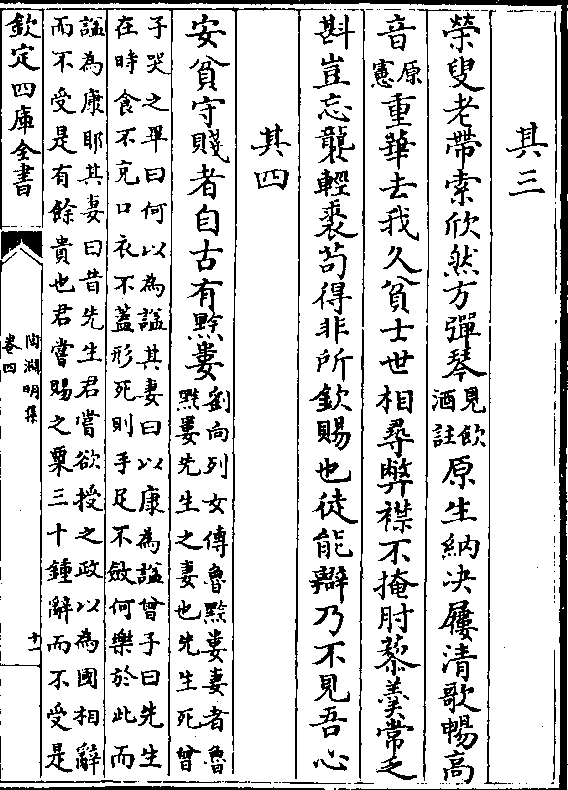 其三
榮叟老帶索欣然方彈琴見飲酒註原生納决屨清歌暢高
音原憲重華去我久貧士世相尋弊襟不掩肘藜羮常乏
斟豈忘襲輕裘苟得非所欽賜也徒能辯乃不見吾心
其四
安貧守賤者自古有黔婁劉向列女傳魯黔婁妻者魯
黔婁先生之妻也先生死曾
子哭之畢曰何以為諡其妻曰以康為諡曾子曰先生
在時食不充口衣不蓋形死則手足不斂何樂於此而
諡為康耶其妻曰昔先生君嘗欲授之政以為國相辭
而不受是有餘貴也君嘗賜之粟三十鍾辭而不受是
欽定四庫全書
陶淵明集
卷四
十一